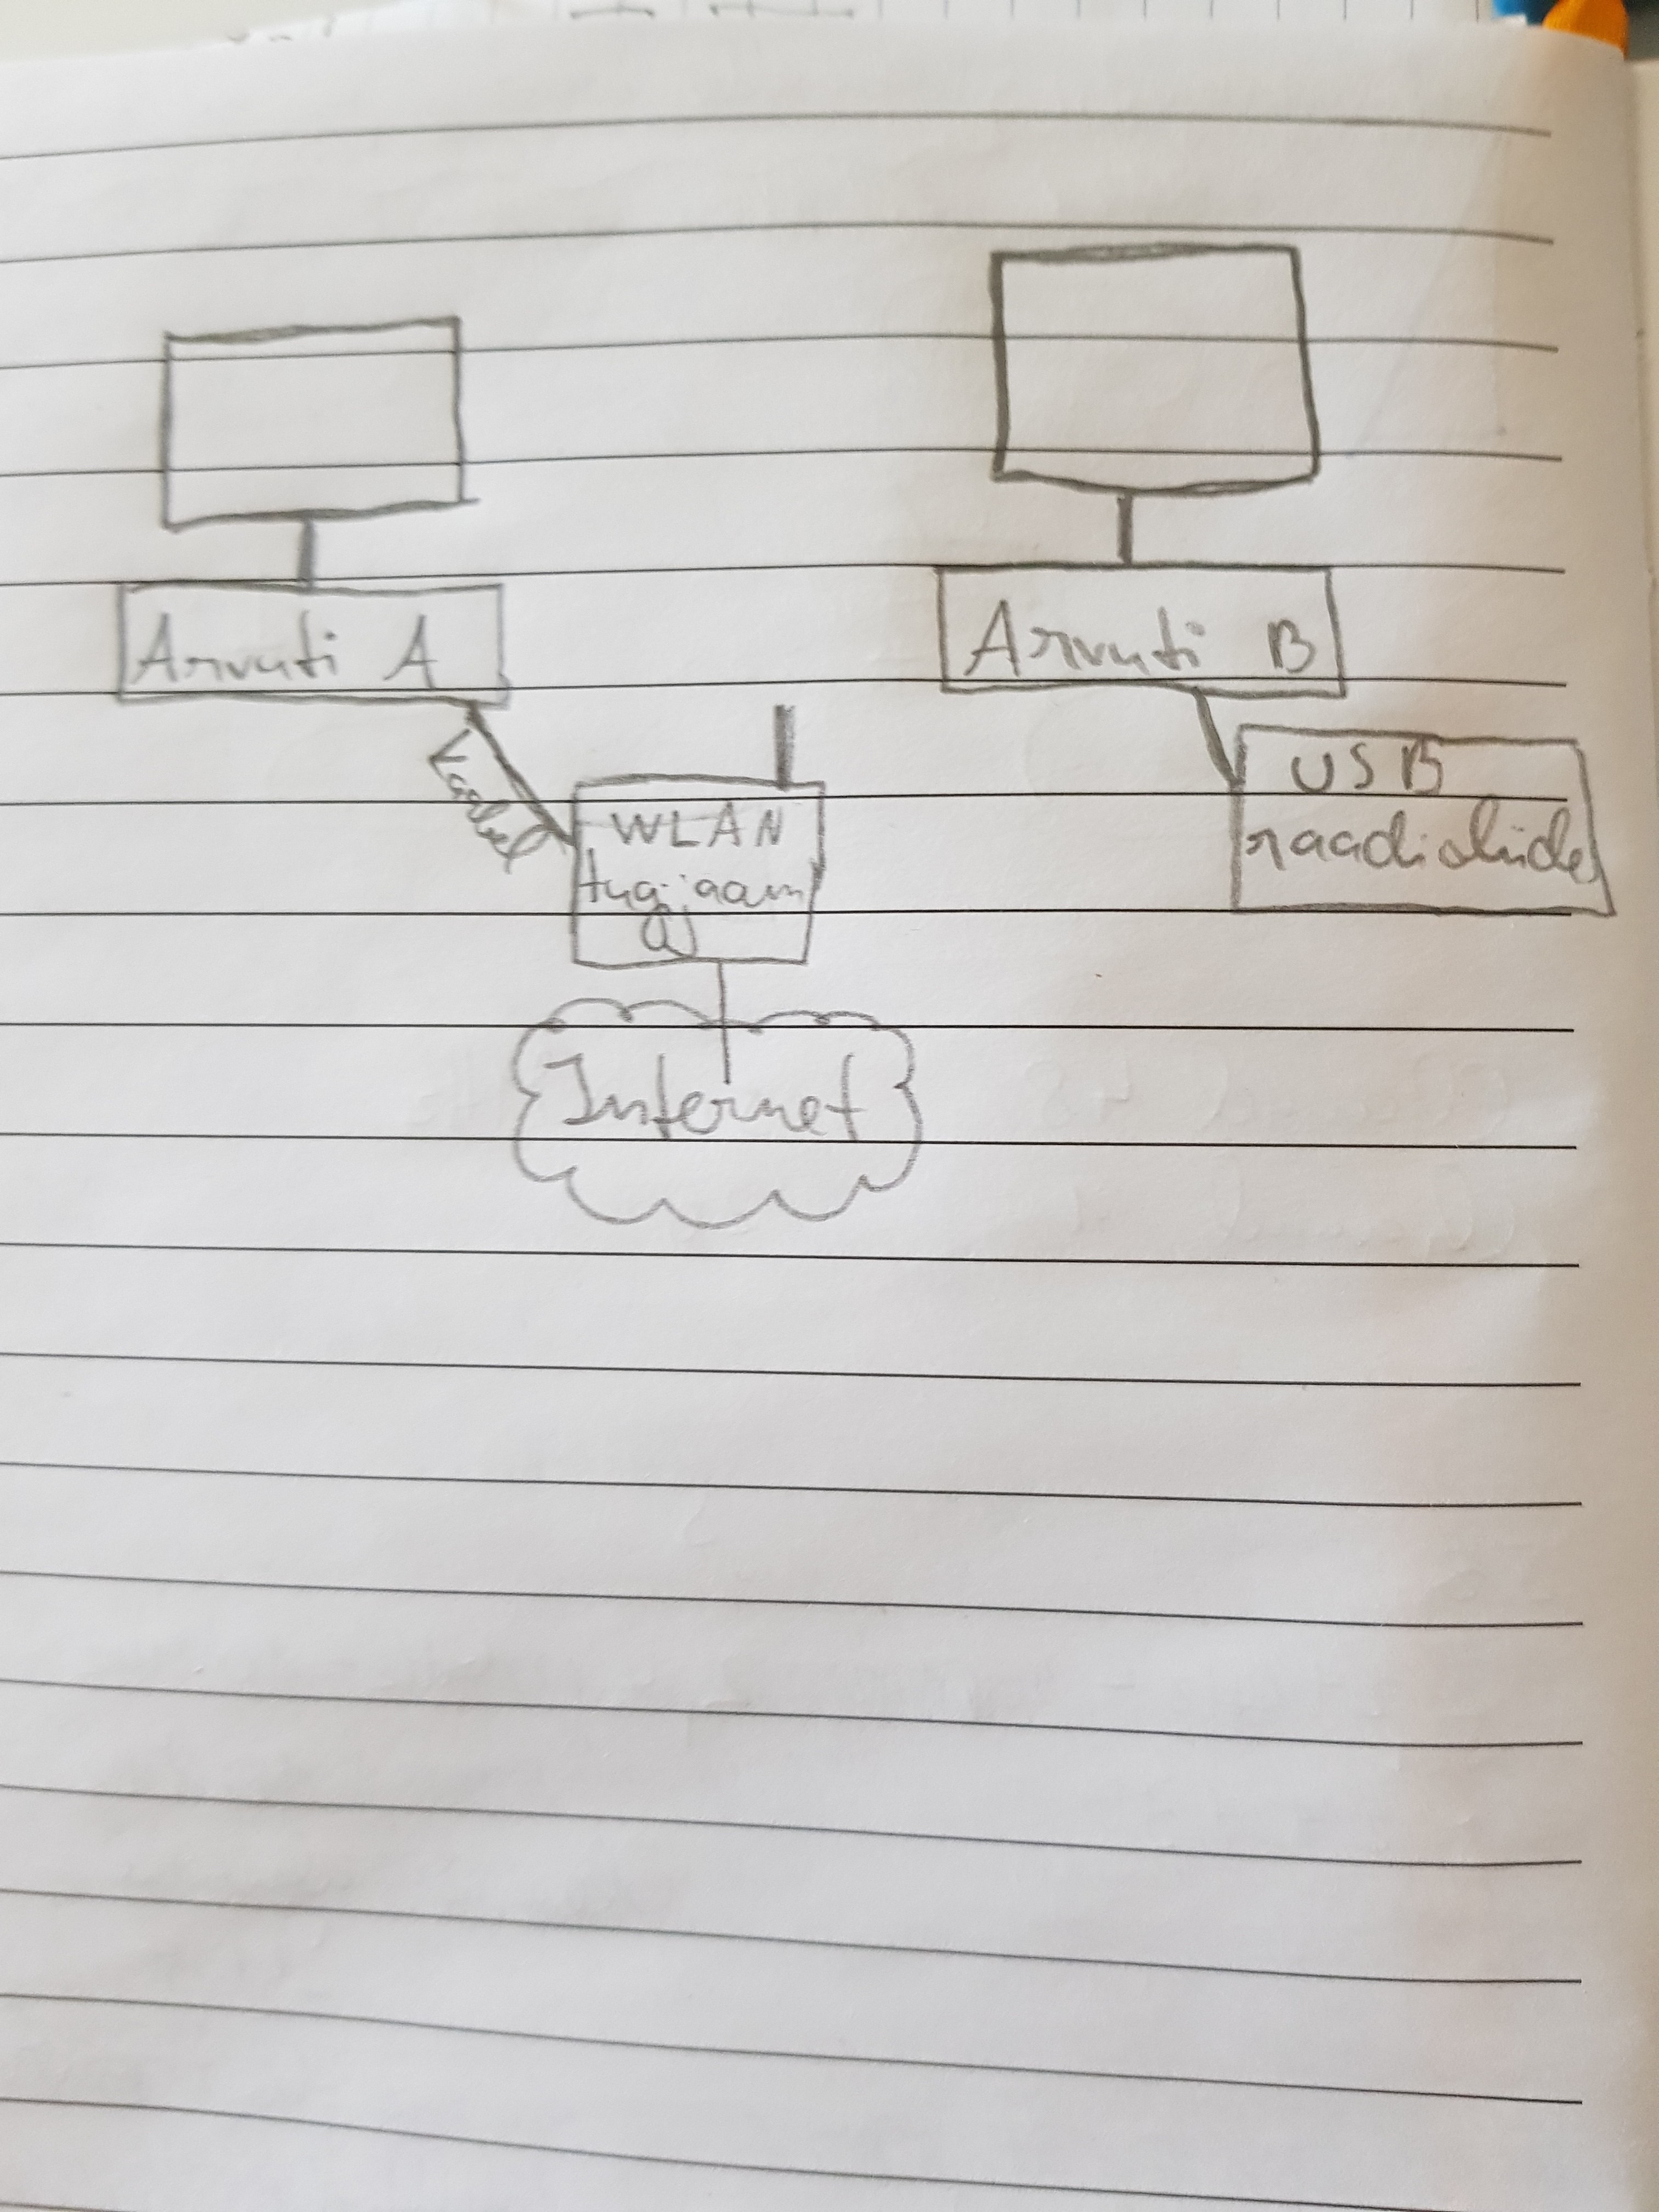 Arvuti A
Arvuti B
Kaabel
WLAN
tugijaam
USB
raadioliides
Internet